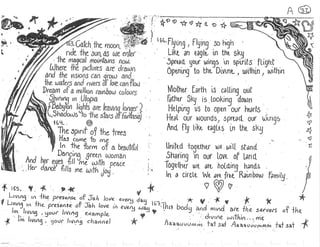 A 32
153. Catch the moon,
ride the sun, as we order
the magical mountains now
Where the pictures are drawn
and the visions can grow and
the waters and rivers of love can flow
Dream of a million rainbow colours
Shining in Utopia
Babylon lights are leaving longer?
Shadows to the stars of fantasy
154.
The spirit of the trees
Has come to me
In the form of a beautiful
Dancing green woman
And her eyes fill me with peace
Her dance fills me with joy.
155.
Living in the presence of Jah love every day
Living in the presence of Jah love in every way
Im living, your living example
Im living, your living channel
156. Flying, Flying so high
Like an eagle in the sky
Spread your wings in spirits flight
Opening to the Divine, within, within
Mother Earth is calling out
Father Sky is looking down
Helping us to open our hearts
Heal our wounds, spread our wings
And fly like eagles in the sky
United together we will stand
Sharing in our love of Land
Together we are holding hands
In a circle We are free Rainbow Family.
157. This body and mind are the servers of the
divine within...me
Aaauuuummm tat sat Aaauuuummm tat sat